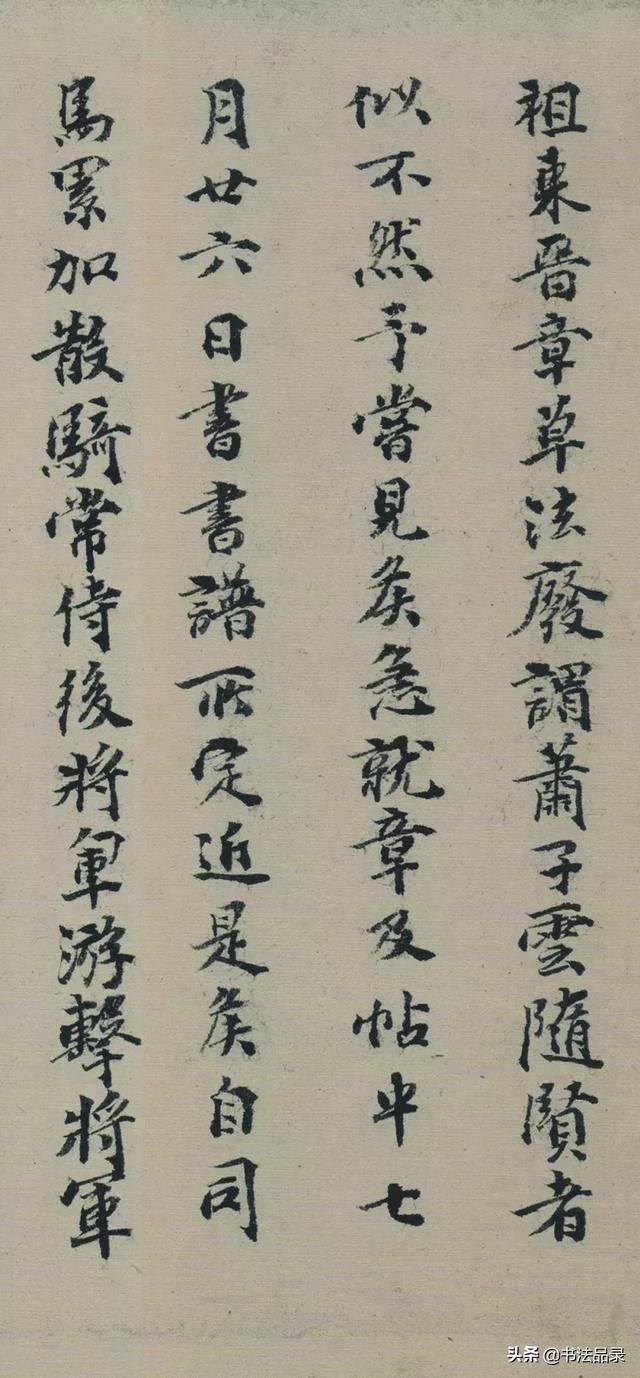 祖東晉章草法廢謂蕭子雲隨賢者
似不然予嘗見矦急就章及帖中七
月廿六日書書譜所定近是矦自司
馬累加散騎常侍後將軍游擊將軍
头条 @书法品录